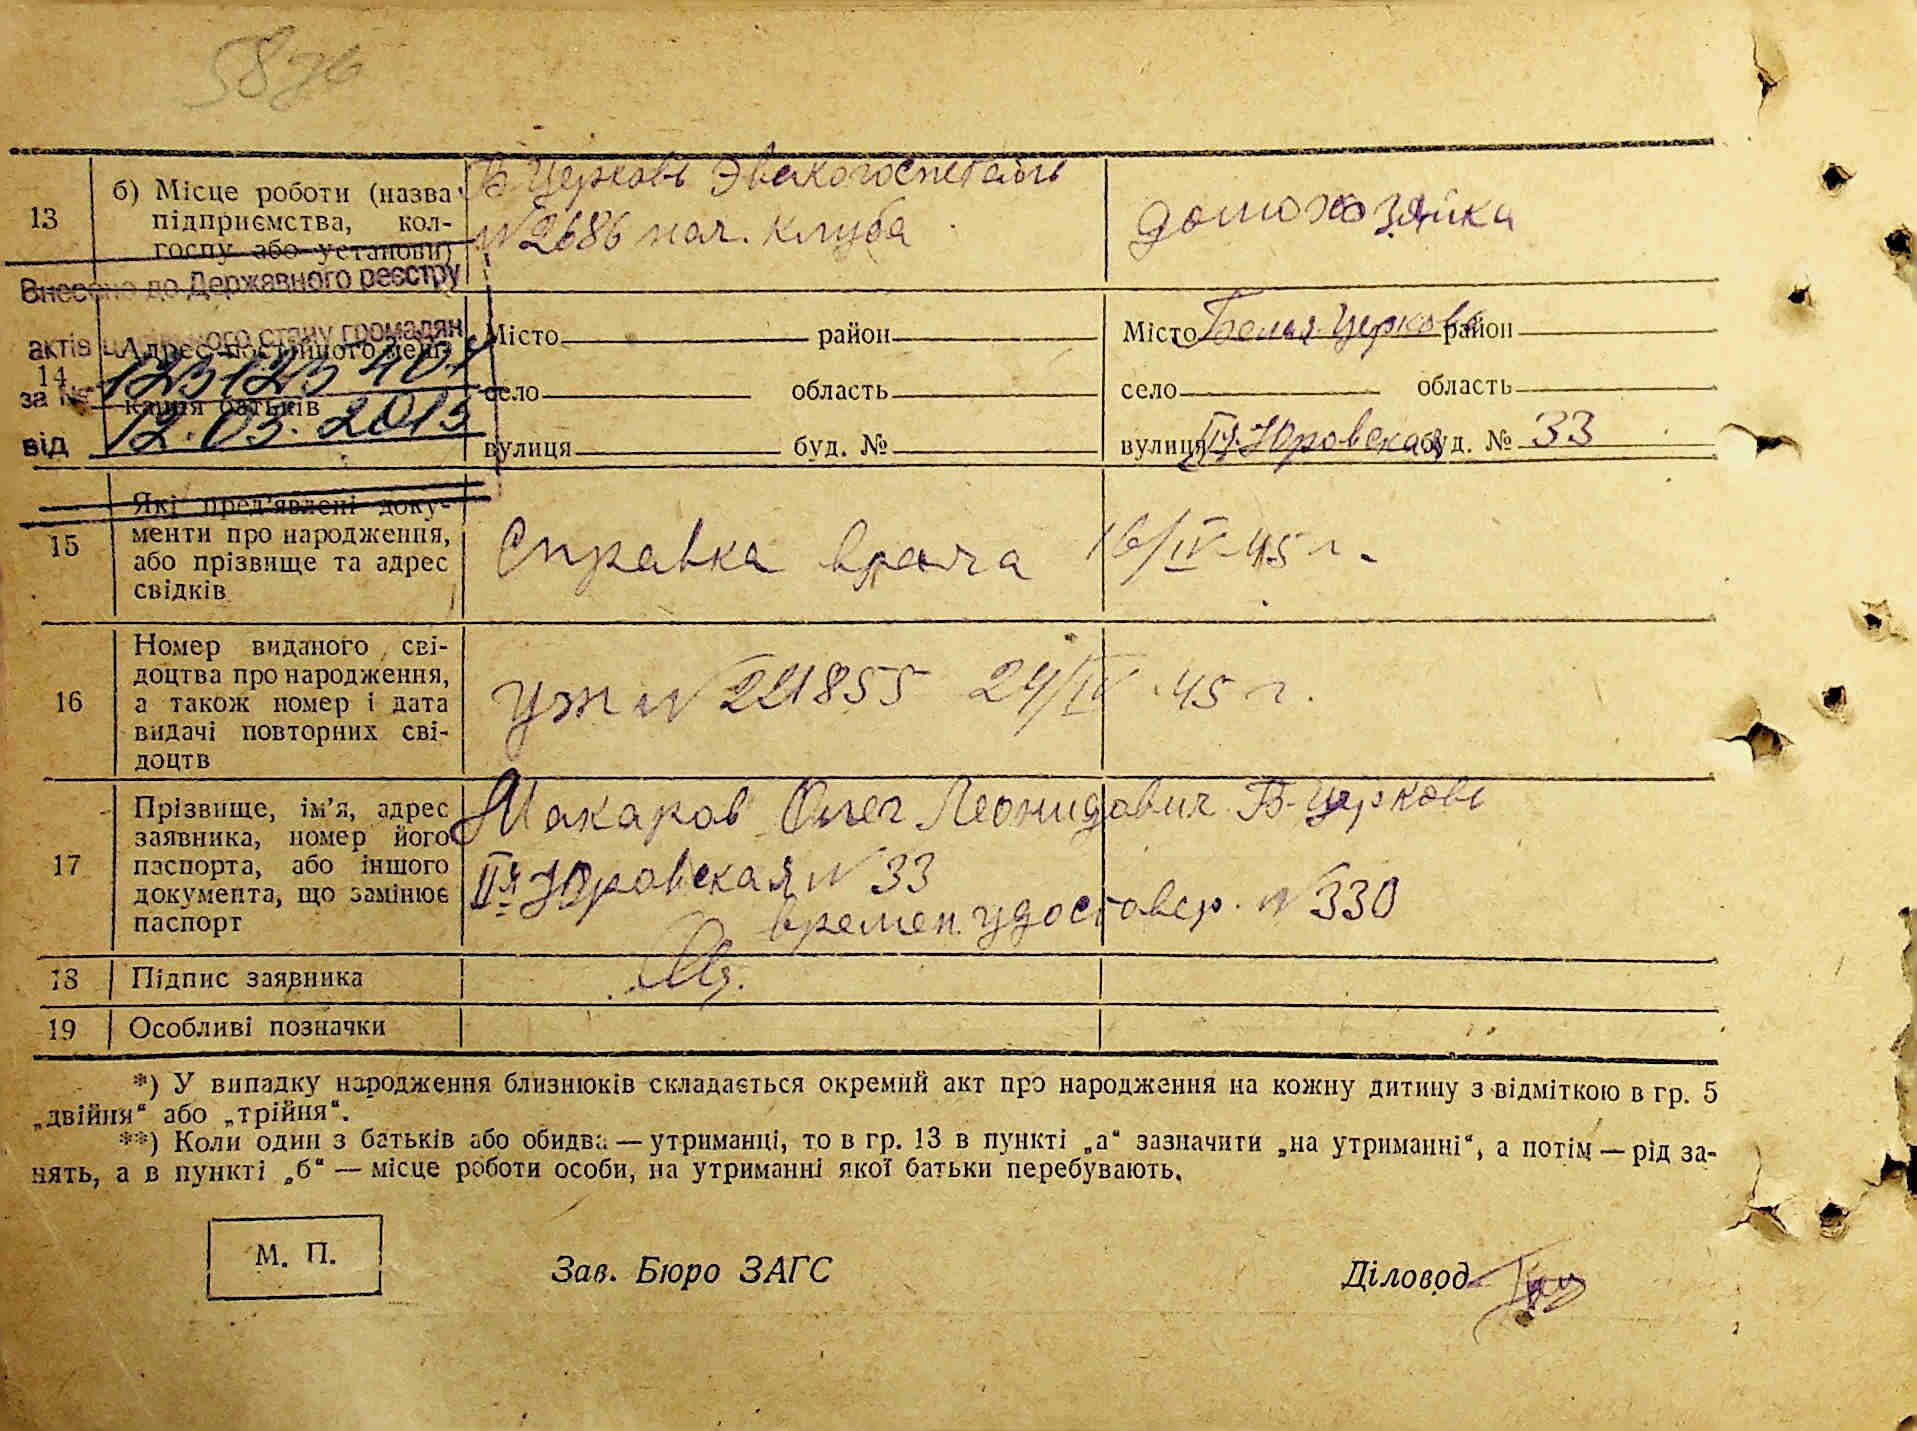 5876
13
б) Місце роботи (назва
підприємства, кол-
госпу або установи)
Б Церковь Эвакогоспиталь
№2686 нач. клуба
домохозяйка
Внесено до Державного реєстру
актів цивільного стану громадян
за №
від 12.03.2013
14
Адрес постійного меш-
кання батьків
Місто район
село область
вулиця буд. №
Місто Белая Церковь район
село область
вулиця IIя Юровская буд. № 33
15
Які пред'явлені доку-
менти про народження,
або прізвище та адрес
свідків
Справка врача 16/IV-45 г.
16
Номер виданого сві-
доцтва про народження,
а також номер і дата
видачі повторних сві-
доцтв
УЖ № 221855 24/IV-45 г.
17
Прізвище, ім'я, адрес
заявника, номер його
паспорта, або іншого
документа, що замінює
паспорт
Макаров Олег Леонидович Б-Церковь
IIя Юровская № 33
времен. удостовер. № 330
18
Підпис заявника
19
Особливі позначки
*) У випадку народження близнюків складається окремий акт про народження на кожну дитину з відміткою в гр. 5
„двійня“ або „трійня“.
**) Коли один з батьків або обидва — утриманці, то в гр. 13 в пункті „а“ зазначити „на утриманні“, а потім — рід за-
нять, а в пункті „б“ — місце роботи особи, на утриманні якої батьки перебувають.
М. П.
Зав. Бюро ЗАГС
Діловод